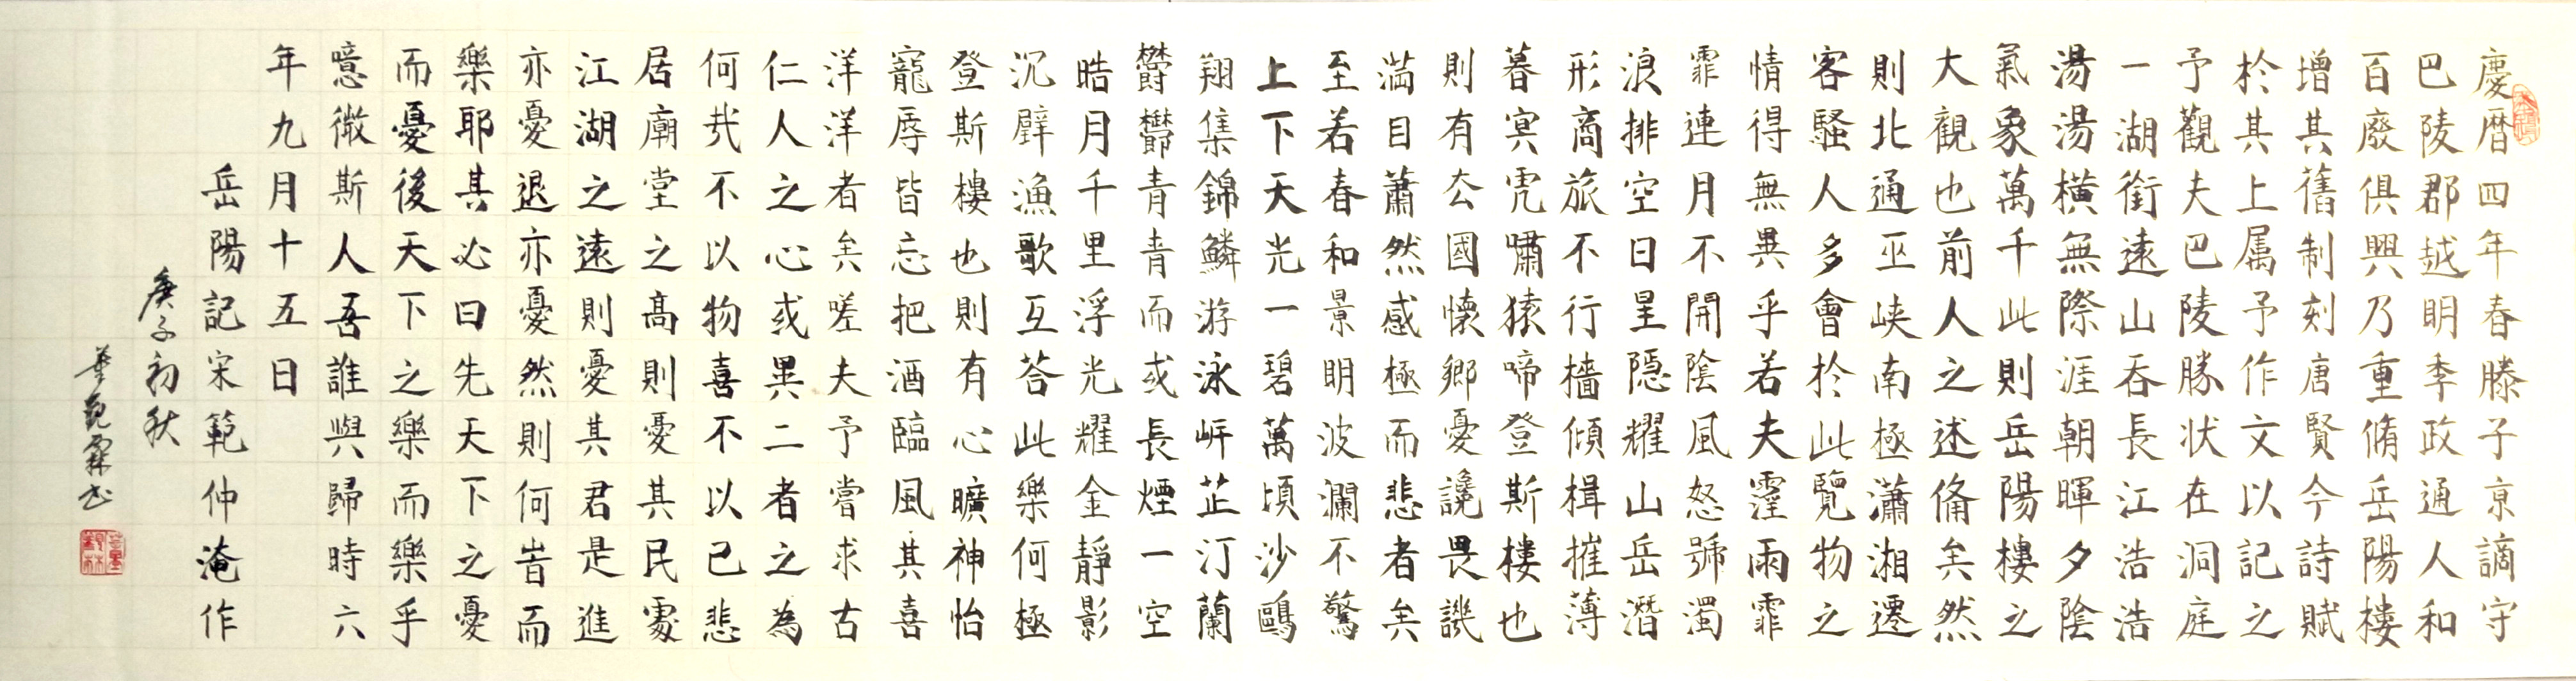 慶曆四年春滕子京謫守
巴陵郡越明季政通人和
百廢俱興乃重脩岳陽樓
增其舊制刻唐賢今詩賦
於其上属予作文以記之
予觀夫巴陵勝状在洞庭
一湖銜遠山吞長江浩浩
湯湯横無際涯朝暉夕陰
氣象萬千此則岳陽樓之
大觀也前人之述俻矣然
則北通巫峡南極瀟湘遷
客騷人多會於此覽物之
情得無異乎若夫霪雨霏
霏連月不開陰風怒號濁
浪排空日星隱耀山岳潛
形商旅不行檣傾楫摧薄
暮冥虎嘯猿啼登斯樓也
則有去國懷鄉憂讒畏譏
滿目蕭然感極而悲者矣
至若春和景明波瀾不驚
上下天光一碧萬頃沙鷗
翔集錦鱗游泳岸芷汀蘭
欝欝青青而或長煙一空
皓月千里浮光耀金靜影
沉璧漁歌互荅此樂何極
登斯樓也則有心曠神怡
寵辱皆忘把酒臨風其喜
洋洋者矣嗟夫予嘗求古
仁人之心或異二者之為
何㦲不以物喜不以已悲
居廟堂之高則憂其民處
江湖之遠則憂其君是進
亦憂退亦憂然則何旹而
樂耶其必曰先天下之憂
而憂後天下之樂而樂乎
噫微斯人吾誰與歸時六
年九月十五日
岳陽記宋範仲淹作
庚子初秋
書